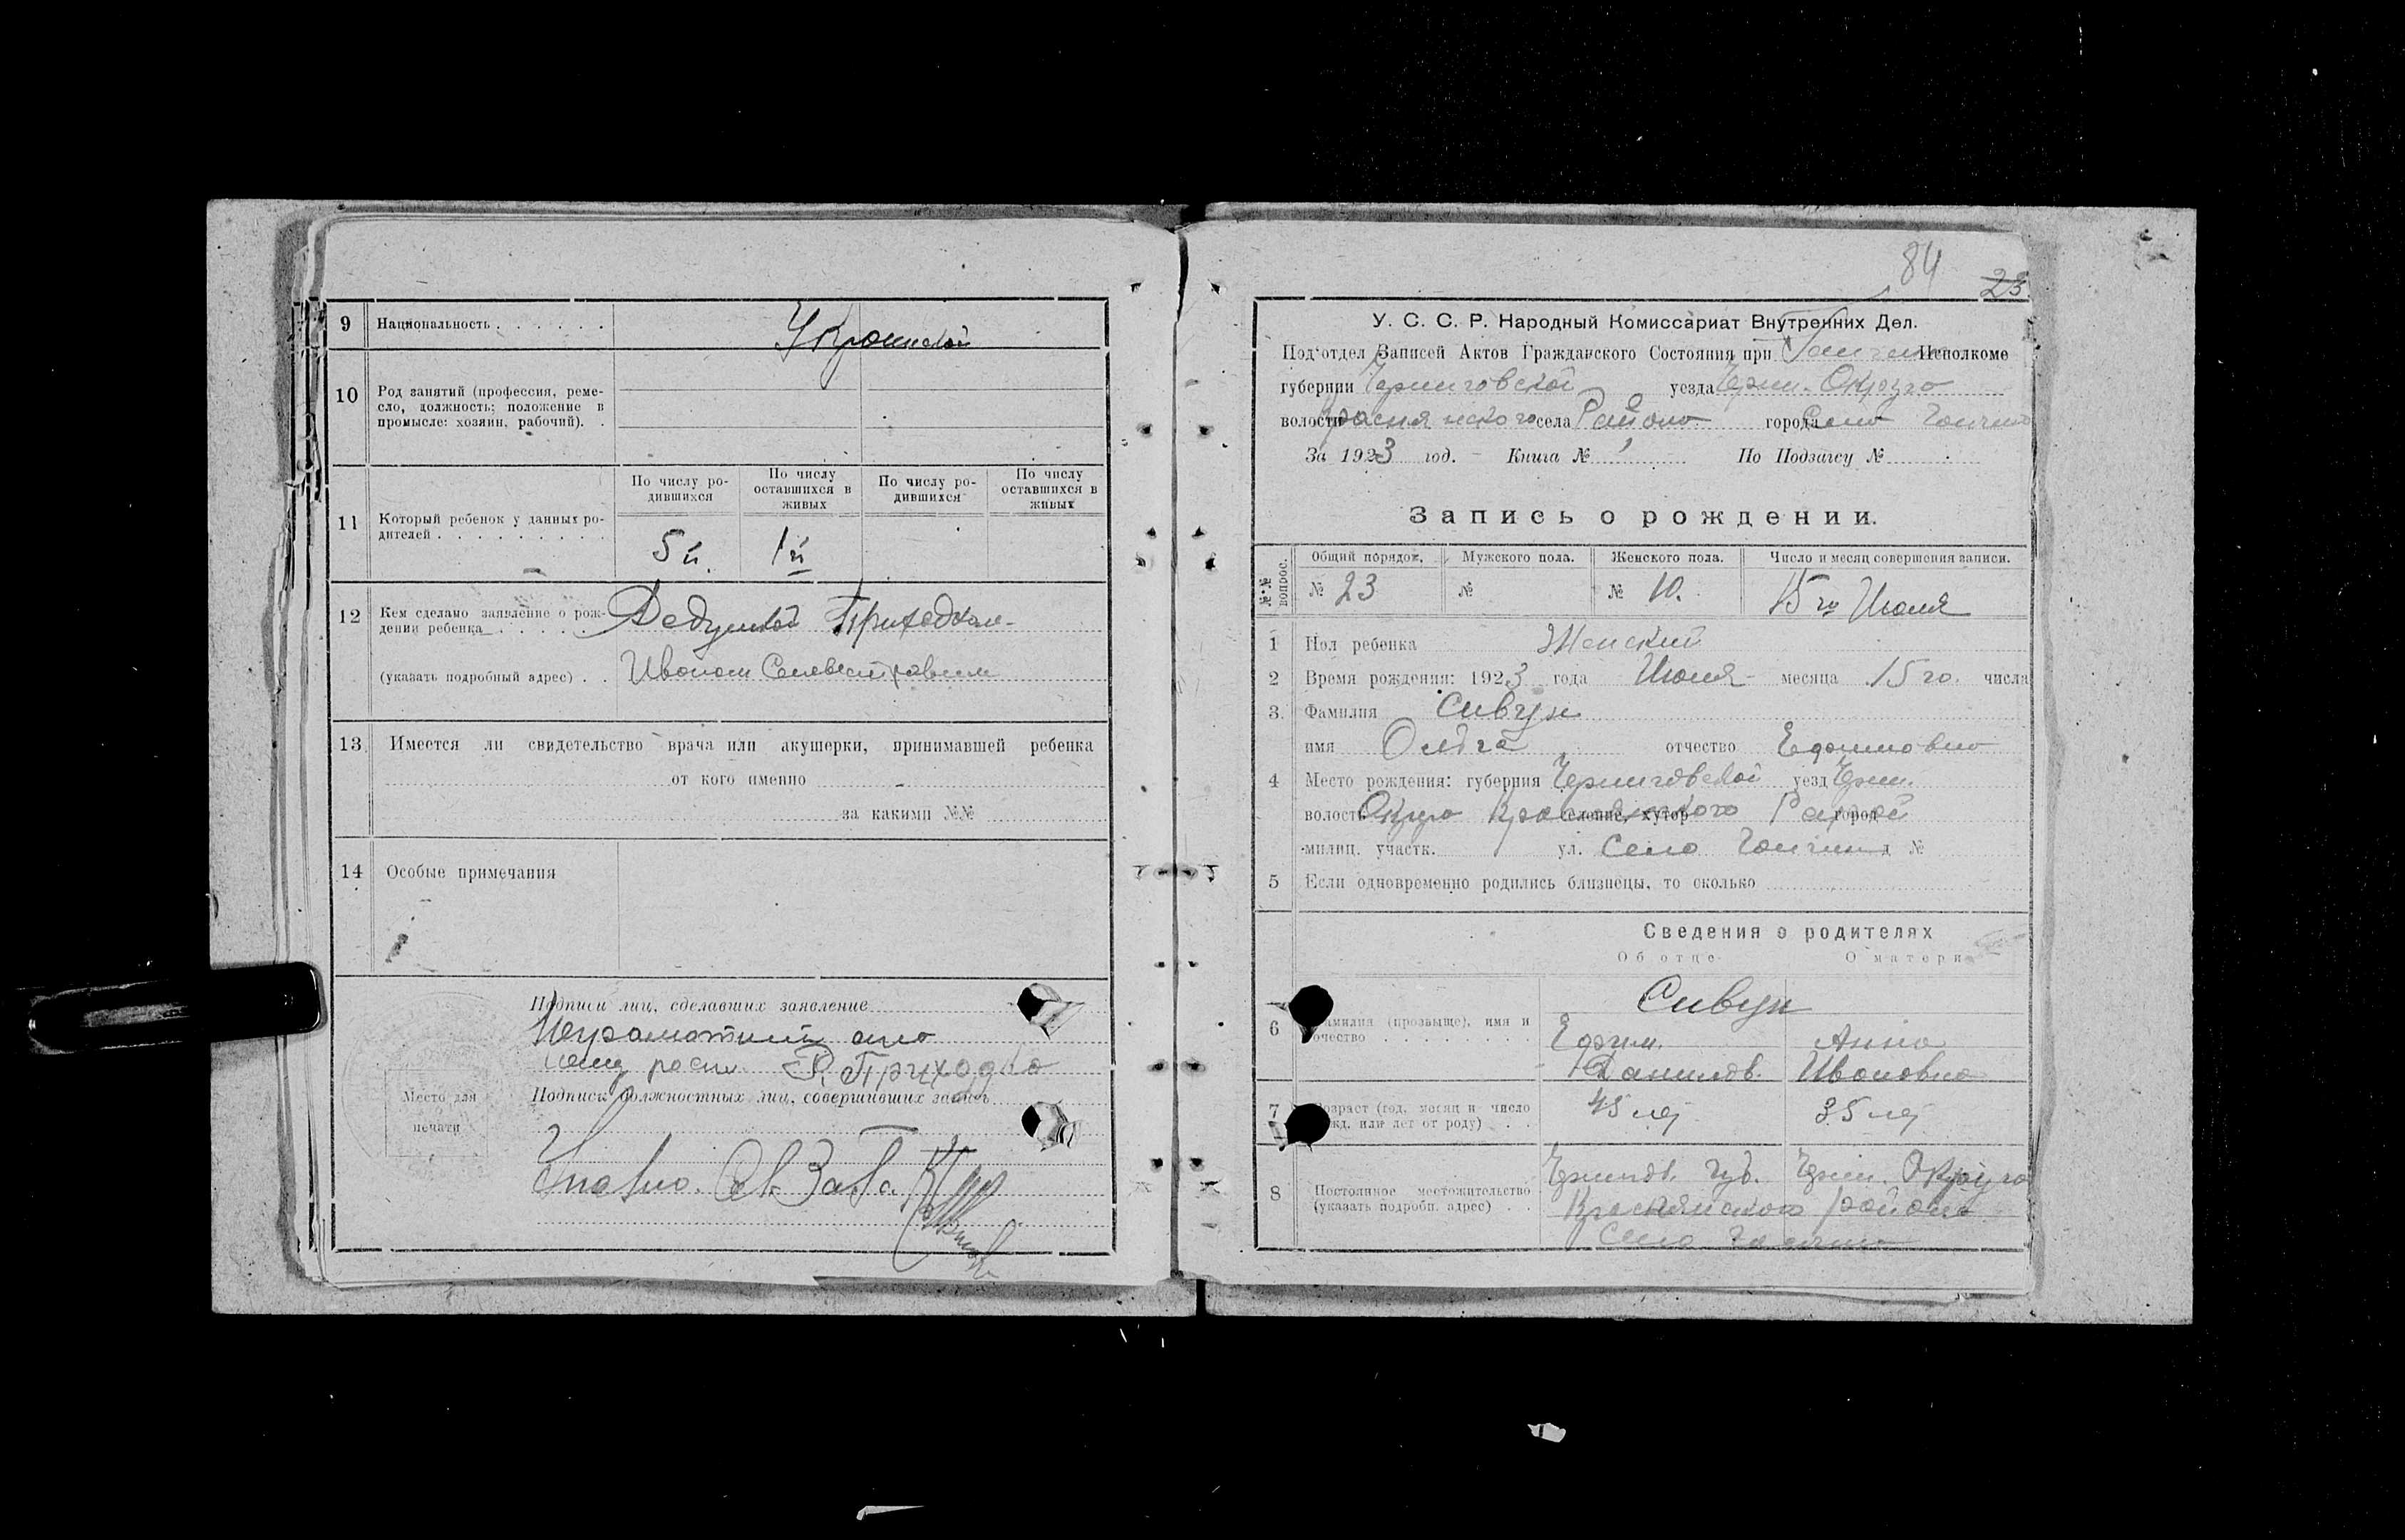 9 Национальность . . . . . .
Украинской
10 Род занятий (профессия, реме-
сло, должность; положение в
промысле: хозяин, рабочий). .
11 Который ребенок у данных ро-
дителей . . . . . . . . .
По числу ро-
дившихся
По числу
оставшихся в
живых
По число ро-
дившихся
По числу
оставшихся в
живых
5й. 1й
12 Кем сделано заявление о рож-
дении ребенка . . . . .
Дедушкой Приходьком
(указать подробный адрес) . .
Иваном Селивестровым
13. Имеется ли свидетельство врача или акушерки, принимавшей ребенка
от кого именно
за какими №№
14 Особые примечания
Подписи лиц, сделавших заявление
Неграмотный а по
росп. Р. Приходько
Подписи должностных лиц, совершивших запись
Место для
печати
84
23
У. С. С. Р. Народный Комиссариат Внутренних Дел.
Под'отдел Записей Актов Гражданского Состояния при Исполкоме
губернии Черниговской уезда Черни. Округа
волости Краснянского села Района города село
За 1923 год. – Книга № 1 По Подзагсу №
Запись о рождении.
№№ вопрос.
Общий порядок, Мужского пола. Женского пола. Число и месяц совершения записи.
№ 23 № № 10. 15го Июля
1 Пол ребенка Женский
2 Время рождения: 1923 года Июля месяца 15го. числа
3. Фамилия Сивун
имя Ольга отчество Ефимовна
4 Место рождения: губерния Черниговской уезд Черни.
волость Округа Краснянского селение, хутор Район город
милиц. участк. ул. Село д №
5 Если одновременно родились близнецы, то сколько
Сведения о родителях
Об отце О матери
6 Фамилия (прозвыще), имя и
отчество . . . . . . . .
Сивун
Ефим. Анна
Данилов. Ивановна
7 Возраст (год, месяц и число
рожд. или лет от роду) . .
45 лет 35 лет
8 Постоянное местожительство
(указать подробн. адрес) . .
Чернигов. губ. Черни. Округа
Краснянского района
Село